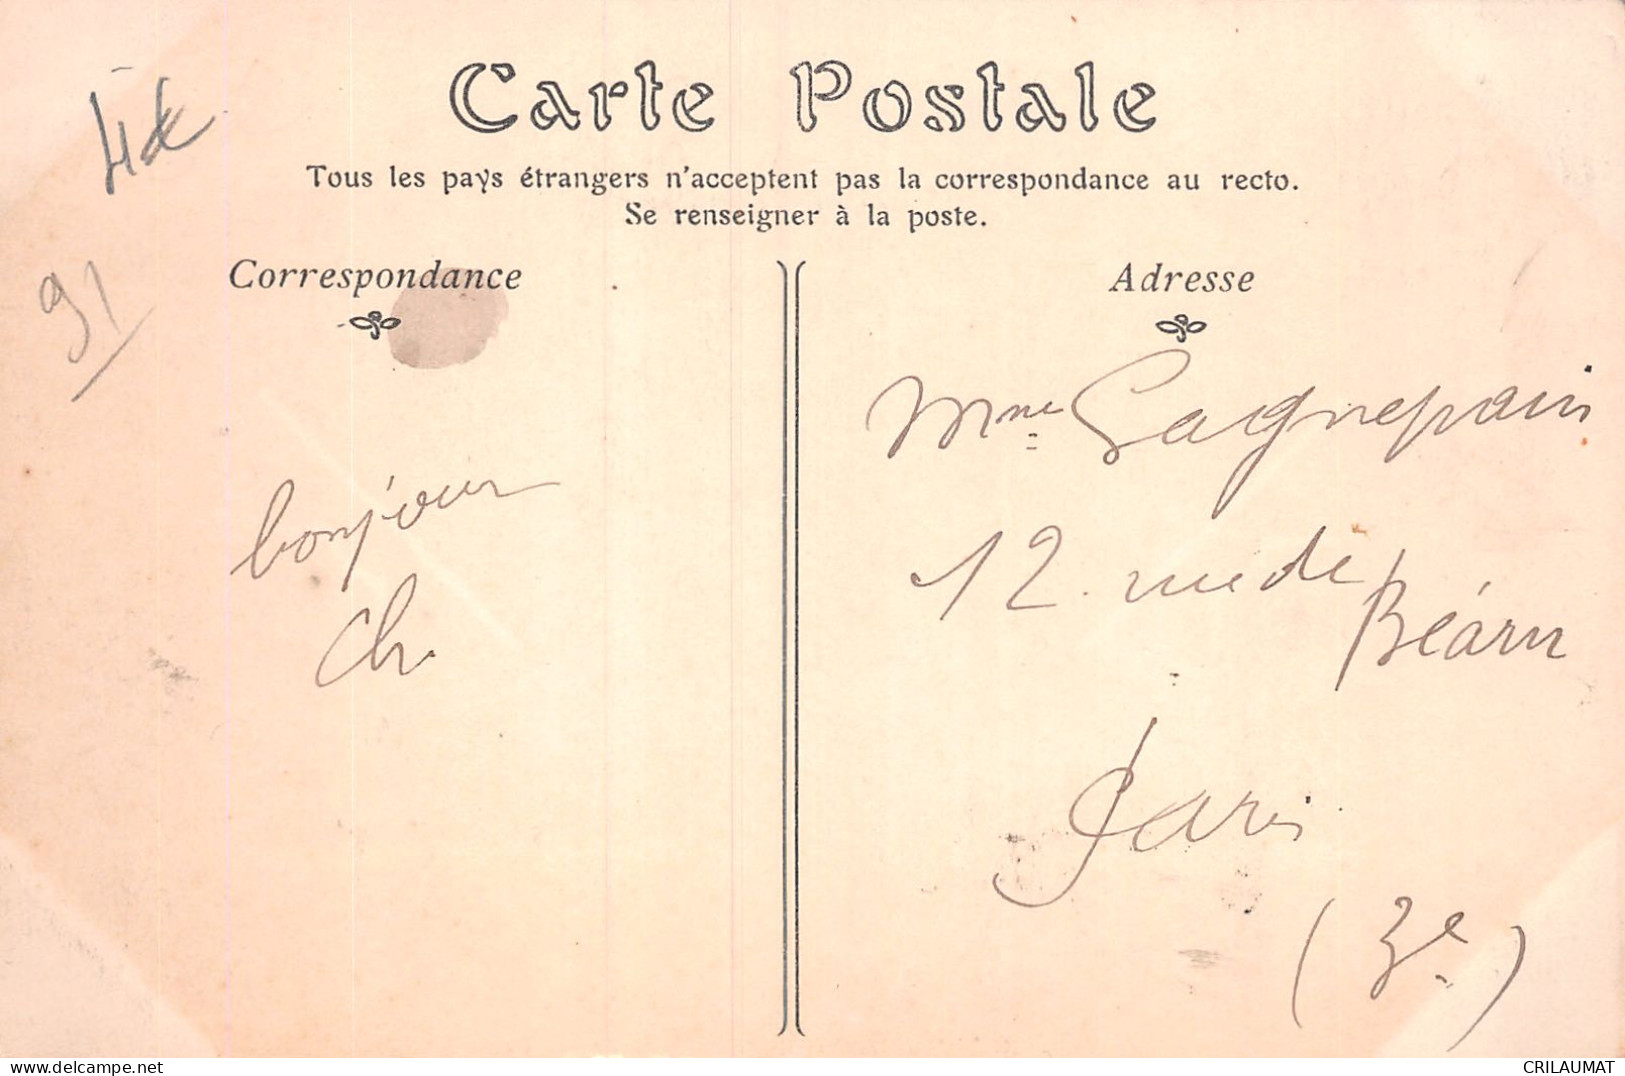 Carte Postale
Tous les pays étrangers n'acceptent pas la correspondance au recto.
Se renseigner à la poste.
Correspondance
Adresse
4€
91
bonjour
Ch.
Mme Gagnepain
12 rue de
Béarn
Paris
(3e)
delcampe.net
CRILAUMAT